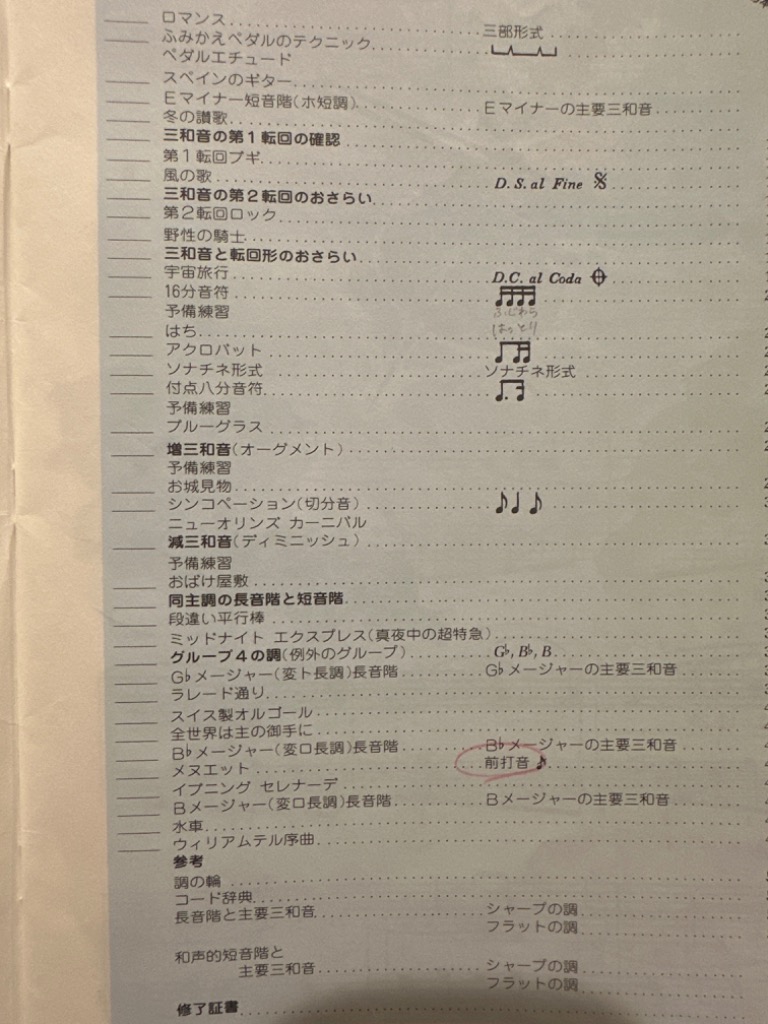 ロマンス 三部形式
ふみかえペダルのテクニック
ペダルエチュード
スペインのギター
Eマイナー短音階(ホ短調) Eマイナーの主要三和音
冬の讃歌
三和音の第1転回の確認
第1転回ブギ
風の歌 D.S. al Fine 𝄋
三和音の第2転回のおさらい
第2転回ロック
野性の騎士
三和音と転回形のおさらい
宇宙旅行 D.C. al Coda 𝄌
16分音符
予備練習 ふじわら
はち はっとり
アクロバット
ソナチネ形式 ソナチネ形式
付点八分音符
予備練習
ブルーグラス
増三和音(オーグメント)
予備練習
お城見物
シンコペーション(切分音) ♪♩♪
ニューオリンズ カーニバル
減三和音(ディミニッシュ)
予備練習
おばけ屋敷
同主調の長音階と短音階
段違い平行棒
ミッドナイト エクスプレス(真夜中の超特急)
グループ4の調(例外のグループ) G♭, B♭, B
G♭メージャー(変ト長調)長音階 G♭メージャーの主要三和音
ラレード通り
スイス製オルゴール
全世界は主の御手に
B♭メージャー(変ロ長調)長音階 B♭メージャーの主要三和音
メヌエット 前打音
イブニング セレナーデ
Bメージャー(変ロ長調)長音階 Bメージャーの主要三和音
水車
ウィリアムテル序曲
参考
調の輪
コード辞典
長音階と主要三和音 シャープの調
フラットの調
和声的短音階と
主要三和音 シャープの調
フラットの調
修了証書